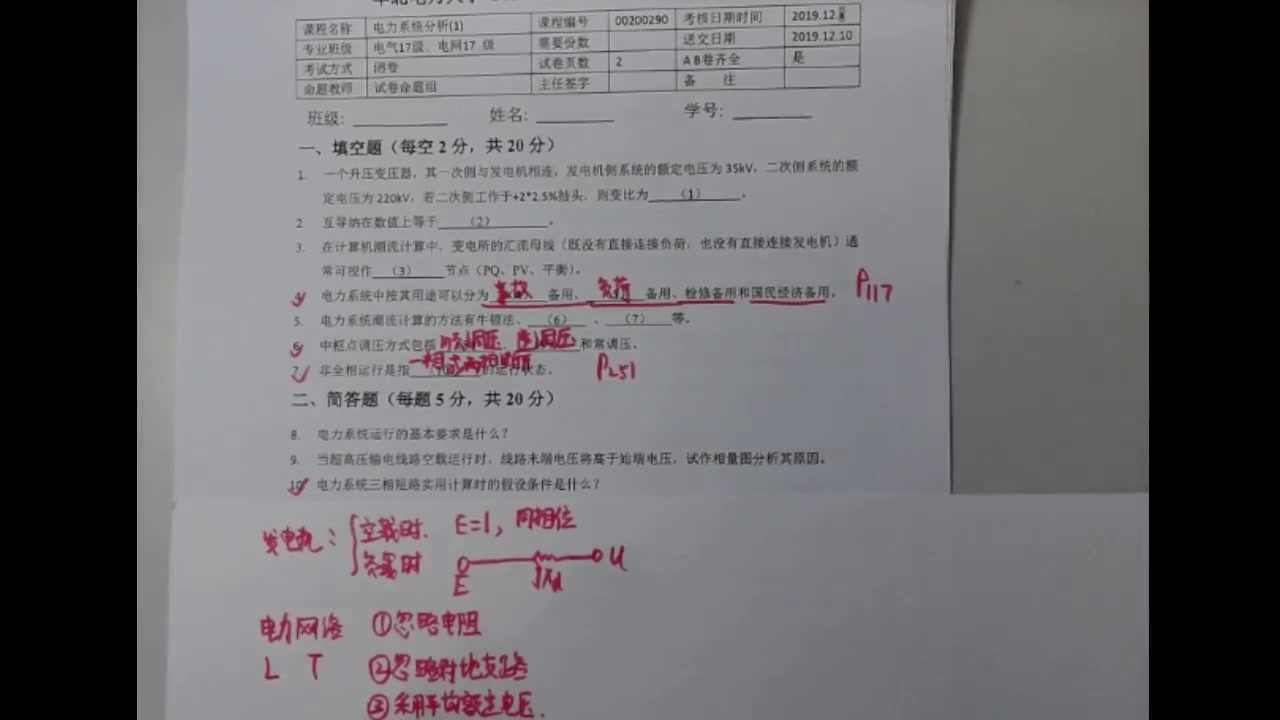 课程名称 电力系统分析(1) 课程编号 00200290 考核日期时间 2019.12.
专业班级 电气17级、电网17 级 需要份数 送交日期 2019.12.10
考试方式 闭卷 试卷页数 2 A B卷齐全 是
命题教师 试卷命题组 主任签字 备 注
班级: 姓名: 学号:
一、填空题（每空 2 分，共 20 分）
1. 一个升压变压器，其一次侧与发电机相连，发电机侧系统的额定电压为 35kV，二次侧系统的额
定电压为 220kV，若二次侧工作于+2*2.5%抽头，则变比为 （1） 。
2. 互导纳在数值上等于 （2） 。
3. 在计算机潮流计算中，变电所的汇流母线（既没有直接连接负荷，也没有直接连接发电机）通
常可视作 （3） 节点（PQ、PV、平衡）。
4. 电力系统中按其用途可以分为 事故 备用、 负荷 备用、检修备用和国民经济备用。 P117
5. 电力系统潮流计算的方法有牛顿法、 （6） 、 （7） 等。
6. 中枢点调压方式包括 顺调压、逆调压 和常调压。
7. 非全相运行是指 一相或两相断开 的运行状态。 P251
二、简答题（每题 5 分，共 20 分）
8. 电力系统运行的基本要求是什么？
9. 当超高压输电线路空载运行时，线路末端电压将高于始端电压，试作相量图分析其原因。
10. 电力系统三相短路实用计算时的假设条件是什么？
发电机： 空载时. E=1，同相位
负载时 E jXd U
电力网络 ①忽略电阻
L T ②忽略对地支路
③采用平均额定电压.